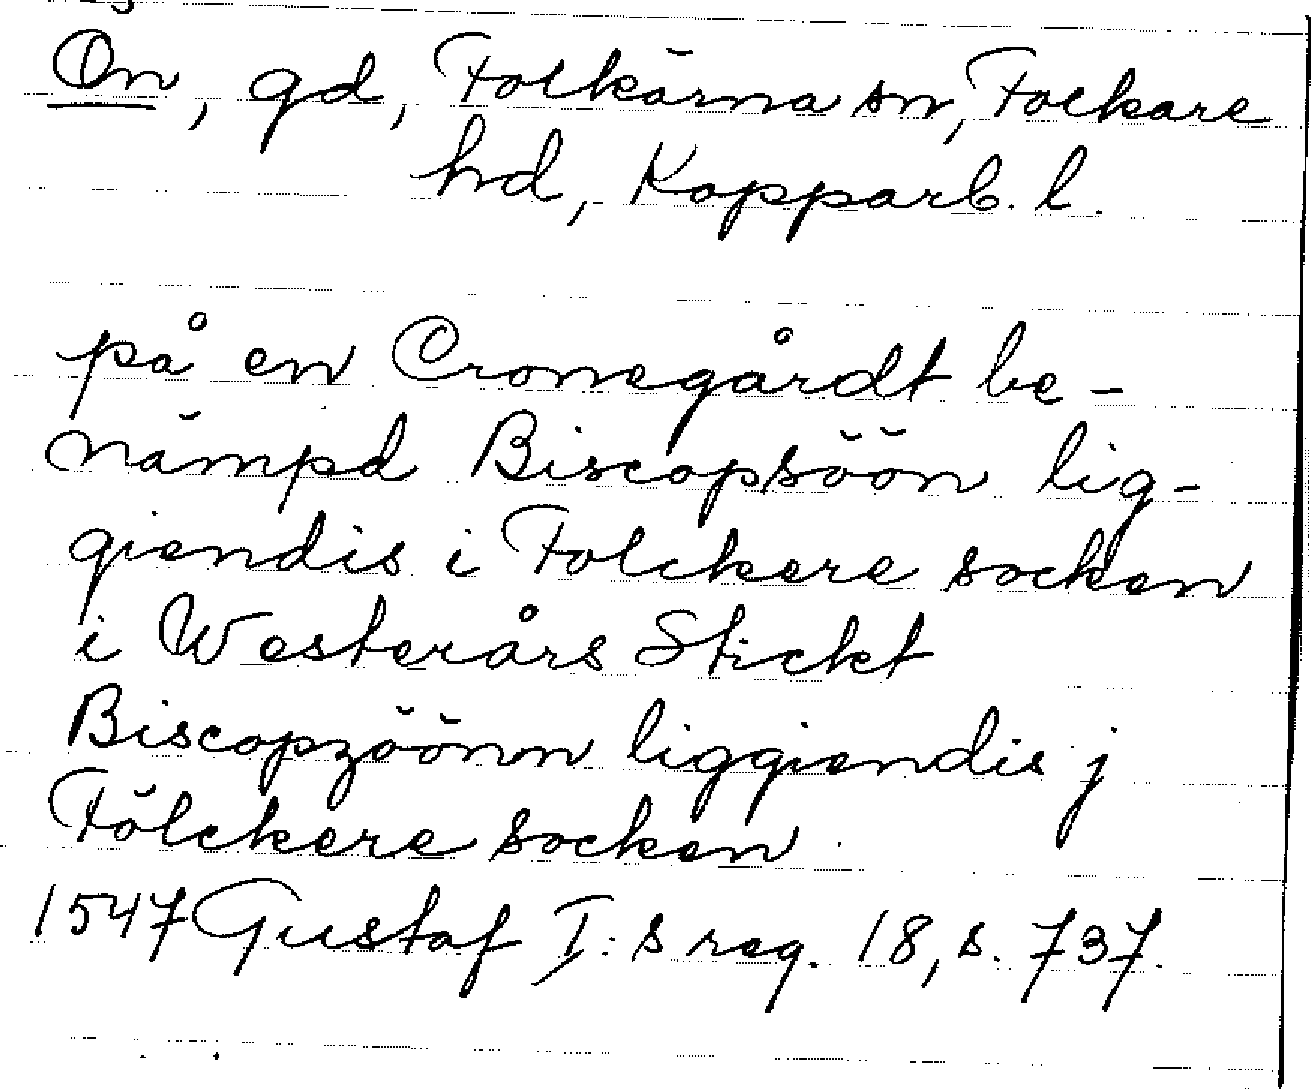 Ön, gd, Folkärna sn, Folkare
hd, Kopparb. l.
på en Cronegårdt be-
nämpd Biscopsöön lig-
giendis i Folckere socken
i Westerårs Stickt
Biscopzöönn liggiendis j
Fölckere socken
1547 Gustaf I:s reg. 18, s. 737.